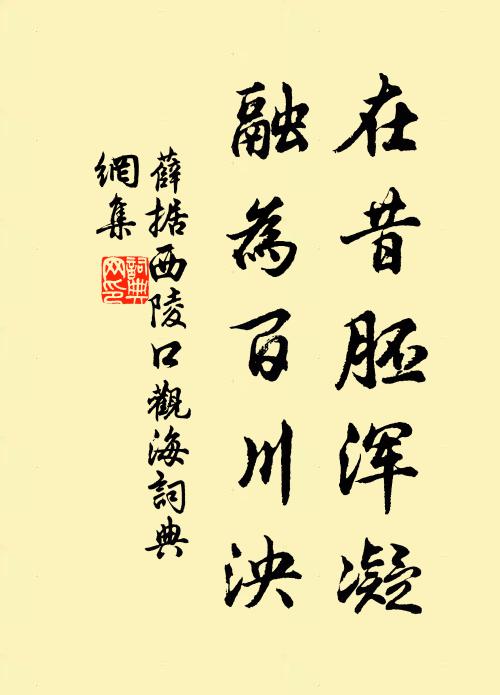 在昔胚浑凝
融為百川泱
薛据西陵口觀海詞典
網集
詞典
网印